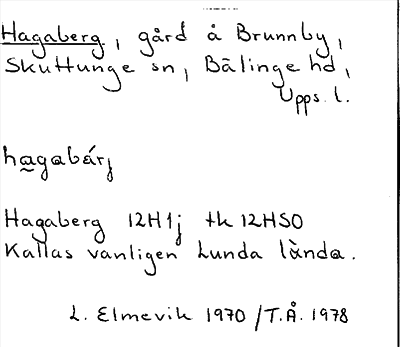 Hagaberg, gård å Brunnby,
Skuttunge sn, Bälinge hd,
Upps. l.
hagabárj
Hagaberg 12H1j tk 12HSO
Kallas vanligen Lunda lùnda.
L. Elmevik 1970 /T.Å. 1978